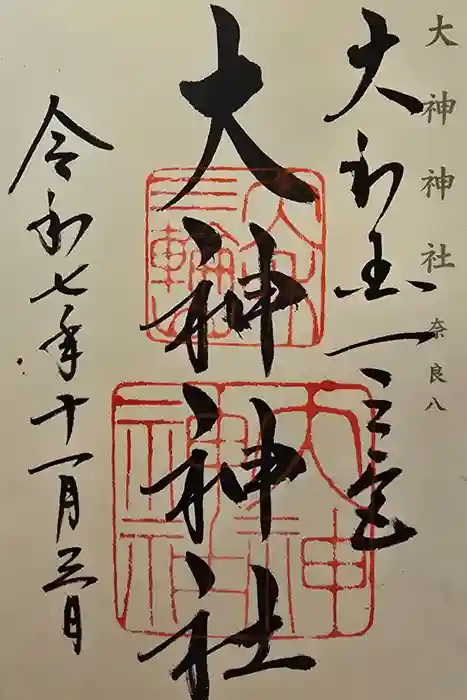 大神神社 奈良八
大和国一之宮
大神神社
三輪山
大神神社
令和七年十一月三日